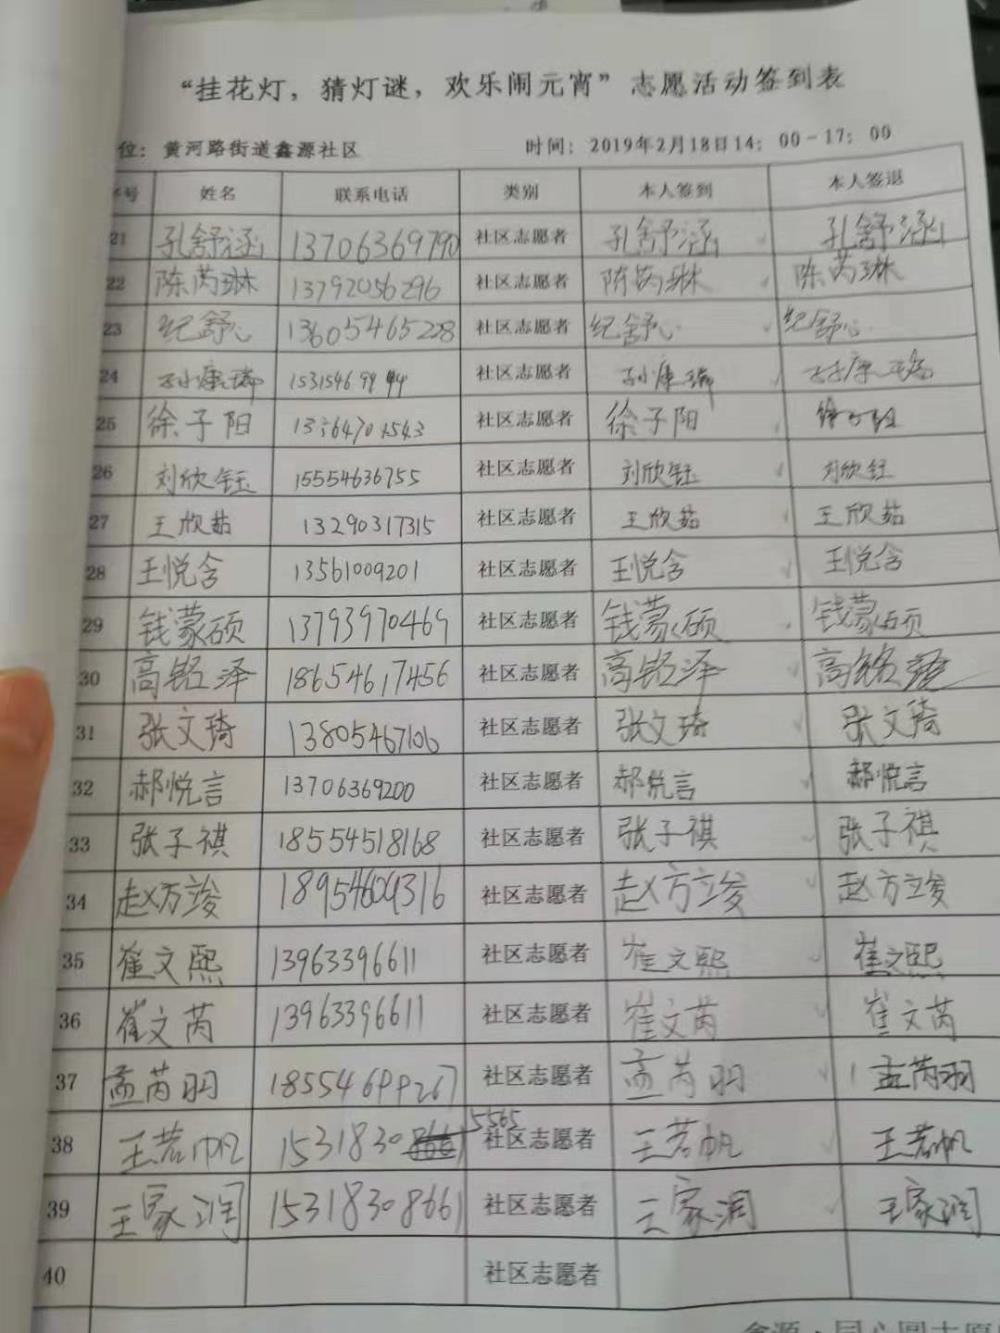 “挂花灯，猜灯谜，欢乐闹元宵”志愿活动签到表
位：黄河路街道鑫源社区 时间：2019年2月18日14：00-17：00
序号 姓名 联系电话 类别 本人签到 本人签退
21 孔舒涵 13706369790 社区志愿者 孔舒涵 孔舒涵
22 陈芮琳 13792056296 社区志愿者 陈芮琳 陈芮琳
23 纪舒心 13605465228 社区志愿者 纪舒心 纪舒心
24 孙康瑞 15315469944 社区志愿者 孙康瑞 孙康瑞
25 徐子阳 社区志愿者 徐子阳 徐子阳
26 刘欣钰 15554636755 社区志愿者 刘欣钰 刘欣钰
27 王欣茹 13290317315 社区志愿者 王欣茹 王欣茹
28 王悦含 13561009201 社区志愿者 王悦含 王悦含
29 钱蒙硕 13793970469 社区志愿者 钱蒙硕 钱蒙硕
30 高铭泽 18654617456 社区志愿者 高铭泽 高铭泽
31 张文琦 13805467106 社区志愿者 张文琦 张文琦
32 郝悦言 13706369200 社区志愿者 郝悦言 郝悦言
33 张子祺 18554518168 社区志愿者 张子祺 张子祺
34 赵方竣 18954609316 社区志愿者 赵方竣 赵方竣
35 崔文熙 13963396611 社区志愿者 崔文熙 崔文熙
36 崔文芮 13963396611 社区志愿者 崔文芮 崔文芮
37 孟芮羽 18554699267 社区志愿者 孟芮羽 孟芮羽
38 王若帆 15318305565 社区志愿者 王若帆 王若帆
39 王家润 15318308661 社区志愿者 王家润 王家润
40 社区志愿者